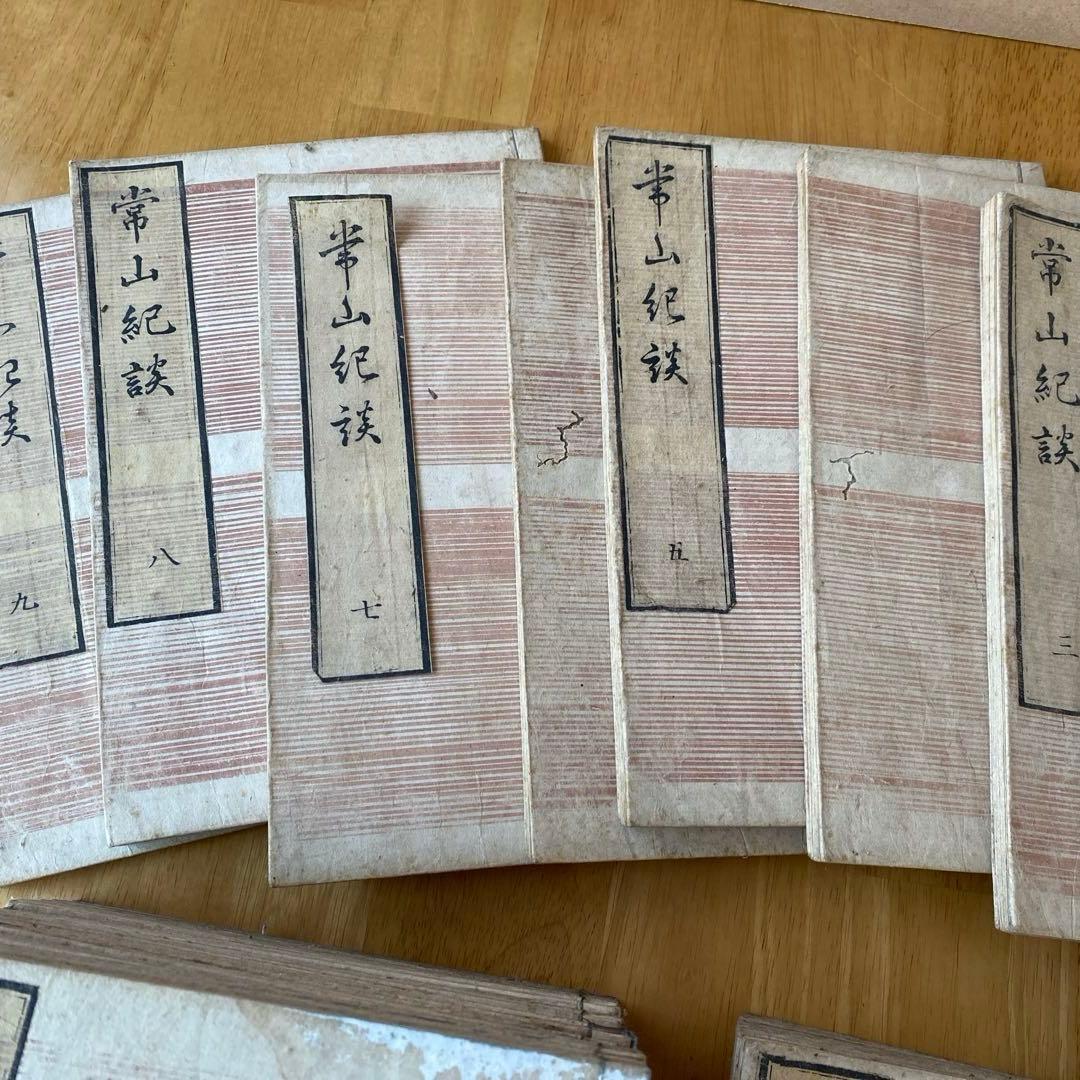 常山紀談
三
常山紀談
五
常山紀談
七
常山紀談
八
山紀談
九